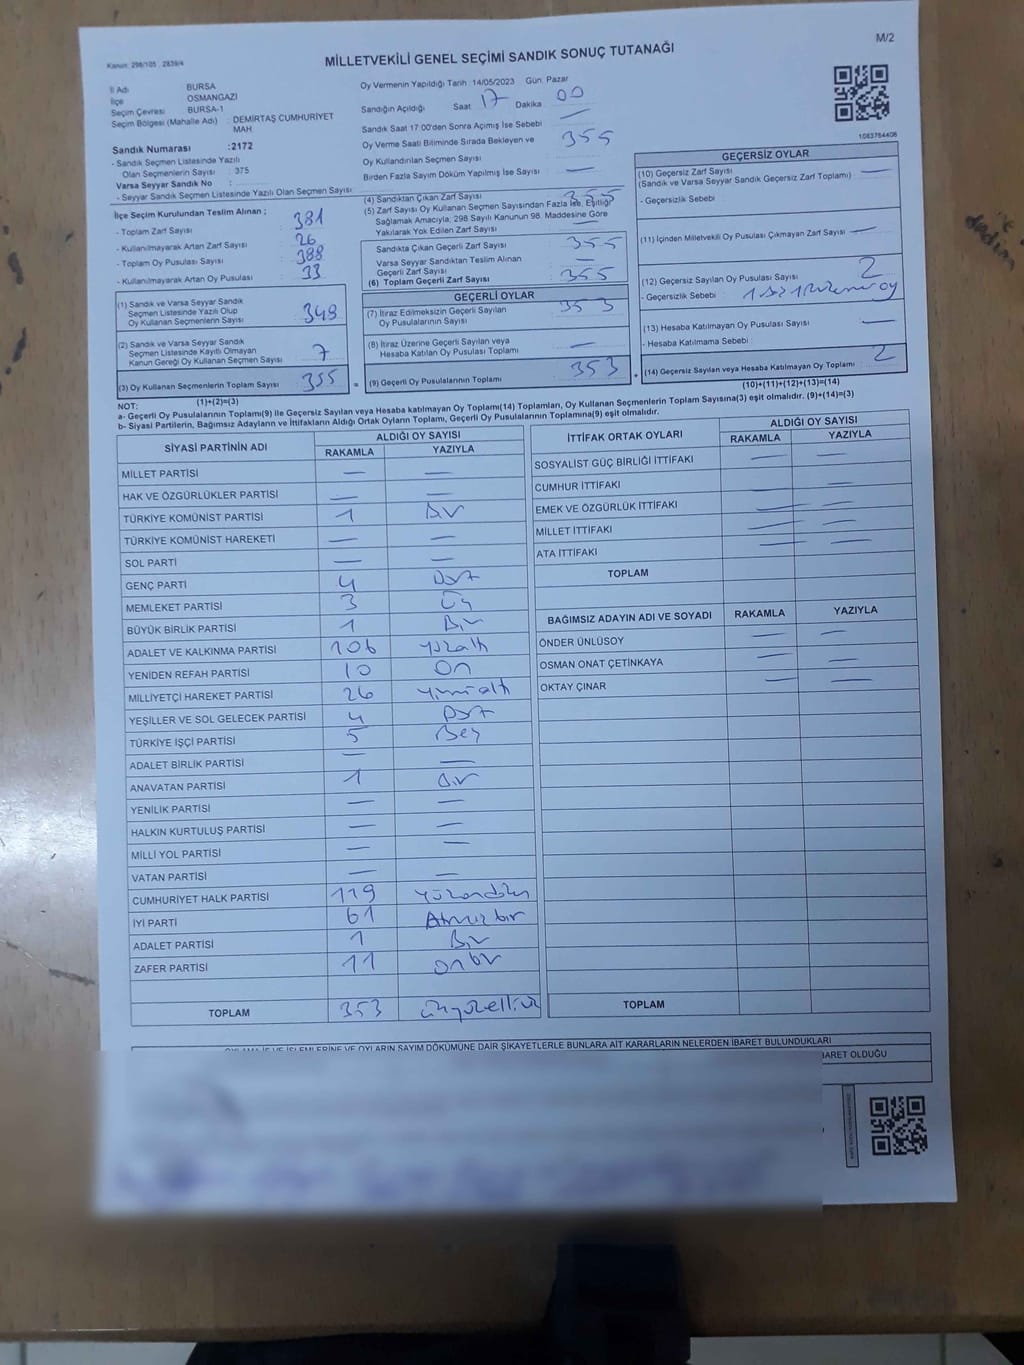 M/2
Kanun: 298/105 , 2839/4
MİLLETVEKİLİ GENEL SEÇİMİ SANDIK SONUÇ TUTANAĞI
İl Adı BURSA
İlçe OSMANGAZI
Seçim Çevresi BURSA-1
Seçim Bölgesi (Mahalle Adı) : DEMİRTAŞ CUMHURİYET MAH
Sandık Numarası :2172
- Sandık Seçmen Listesinde Yazılı
Olan Seçmenlerin Sayısı : 375
Varsa Seyyar Sandık No :
- Seyyar Sandık Seçmen Listesinde Yazılı Olan Seçmen Sayısı
Oy Vermenin Yapıldığı Tarih 14/05/2023 Gün: Pazar
Sandığın Açıldığı Saat 17 Dakika 00
Sandık Saat 17:00'den Sonra Açımış İse Sebebi —
Oy Verme Saati Bitiminde Sırada Bekleyen ve 355
Oy Kullandırılan Seçmen Sayısı
Birden Fazla Sayım Döküm Yapılmış İse Sayısı —
1083784406
İlçe Seçim Kurulundan Teslim Alınan ;
- Toplam Zarf Sayısı : 381
- Kullanılmayarak Artan Zarf Sayısı : 26
- Toplam Oy Pusulası Sayısı : 388
- Kullanılmayarak Artan Oy Pusulası : 33
(1) Sandık ve Varsa Seyyar Sandık
Seçmen Listesinde Yazılı Olup
Oy Kullanan Seçmenlerin Sayısı : 348
(2) Sandık ve Varsa Seyyar Sandık
Seçmen Listesinde Kayıtlı Olmayan
Kanun Gereği Oy Kullanan Seçmen Sayısı : 7
(3) Oy Kullanan Seçmenlerin Toplam Sayısı : 355
(1)+(2)=(3)
(4) Sandıktan Çıkan Zarf Sayısı : 355
(5) Zarf Sayısı Oy Kullanan Seçmen Sayısından Fazla İse, Eşitliği
Sağlamak Amacıyla, 298 Sayılı Kanunun 98. Maddesine Göre
Yakılarak Yok Edilen Zarf Sayısı : —
Sandıkta Çıkan Geçerli Zarf Sayısı : 355
Varsa Seyyar Sandıktan Teslim Alınan
Geçerli Zarf Sayısı : —
(6) Toplam Geçerli Zarf Sayısı : 355
GEÇERLİ OYLAR
(7) İtiraz Edilmeksizin Geçerli Sayılan
Oy Pusulalarının Sayısı : 353
(8) İtiraz Üzerine Geçerli Sayılan veya
Hesaba Katılan Oy Pusulası Toplamı : —
(9) Geçerli Oy Pusulalarının Toplamı : 353
GEÇERSİZ OYLAR
(10) Geçersiz Zarf Sayısı : —
(Sandık ve Varsa Seyyar Sandık Geçersiz Zarf Toplamı)
- Geçersizlik Sebebi :
(11) İçinden Milletvekili Oy Pusulası Çıkmayan Zarf Sayısı —
(12) Geçersiz Sayılan Oy Pusulası Sayısı : 2
- Geçersizlik Sebebi :
(13) Hesaba Katılmayan Oy Pusulası Sayısı : —
- Hesaba Katılmama Sebebi :
(14) Geçersiz Sayılan veya Hesaba Katılmayan Oy Toplamı : 2
(10)+(11)+(12)+(13)=(14)
NOT:
a- Geçerli Oy Pusulalarının Toplamı(9) ile Geçersiz Sayılan veya Hesaba katılmayan Oy Toplamı(14) Toplamları, Oy Kullanan Seçmenlerin Toplam Sayısına(3) eşit olmalıdır. (9)+(14)=(3)
b- Siyasi Partilerin, Bağımsız Adayların ve İttifakların Aldığı Ortak Oyların Toplamı, Geçerli Oy Pusulalarının Toplamına(9) eşit olmalıdır.
SİYASİ PARTİNİN ADI ALDIĞI OY SAYISI
RAKAMLA YAZIYLA
MİLLET PARTİSİ — —
HAK VE ÖZGÜRLÜKLER PARTİSİ — —
TÜRKİYE KOMÜNİST PARTİSİ 1 Bir
TÜRKİYE KOMÜNİST HAREKETİ — —
SOL PARTİ — —
GENÇ PARTİ 4 Dört
MEMLEKET PARTİSİ 3 Üç
BÜYÜK BİRLİK PARTİSİ 1 Bir
ADALET VE KALKINMA PARTİSİ 106 yüzaltı
YENİDEN REFAH PARTİSİ 10 On
MİLLİYETÇİ HAREKET PARTİSİ 26 yirmialtı
YEŞİLLER VE SOL GELECEK PARTİSİ 4 Dört
TÜRKİYE İŞÇİ PARTİSİ 5 Beş
ADALET BİRLİK PARTİSİ — —
ANAVATAN PARTİSİ 1 Bir
YENİLİK PARTİSİ — —
HALKIN KURTULUŞ PARTİSİ — —
MİLLİ YOL PARTİSİ — —
VATAN PARTİSİ — —
CUMHURİYET HALK PARTİSİ 119 yüzondokuz
İYİ PARTİ 61 Atmış bir
ADALET PARTİSİ 1 Bir
ZAFER PARTİSİ 11 onbir
TOPLAM 353 üçyüzelliüç
İTTİFAK ORTAK OYLARI ALDIĞI OY SAYISI
RAKAMLA YAZIYLA
SOSYALİST GÜÇ BİRLİĞİ İTTİFAKI — —
CUMHUR İTTİFAKI — —
EMEK VE ÖZGÜRLÜK İTTİFAKI — —
MİLLET İTTİFAKI — —
ATA İTTİFAKI — —
TOPLAM
BAĞIMSIZ ADAYIN ADI VE SOYADI RAKAMLA YAZIYLA
ÖNDER ÜNLÜSOY — —
OSMAN ONAT ÇETİNKAYA — —
OKTAY ÇINAR — —
TOPLAM
OYLAMA İŞ VE İŞLEMLERİNE VE OYLARIN SAYIM DÖKÜMÜNE DAİR ŞİKAYETLERLE BUNLARA AİT KARARLARIN NELERDEN İBARET BULUNDUKLARI
BARET OLDUĞU